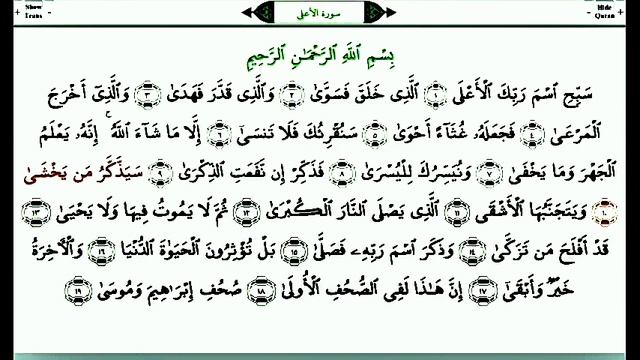 Show Trans
سورة الأعلى
Hide Quran
بِسْمِ ٱللَّهِ ٱلرَّحْمَٰنِ ٱلرَّحِيمِ
سَبِّحِ ٱسْمَ رَبِّكَ ٱلْأَعْلَى ١ ٱلَّذِى خَلَقَ فَسَوَّىٰ ٢ وَٱلَّذِى قَدَّرَ فَهَدَىٰ ٣ وَٱلَّذِىٓ أَخْرَجَ
ٱلْمَرْعَىٰ ٤ فَجَعَلَهُۥ غُثَآءً أَحْوَىٰ ٥ سَنُقْرِئُكَ فَلَا تَنسَىٰٓ ٦ إِلَّا مَا شَآءَ ٱللَّهُ ۚ إِنَّهُۥ يَعْلَمُ
ٱلْجَهْرَ وَمَا يَخْفَىٰ ٧ وَنُيَسِّرُكَ لِلْيُسْرَىٰ ٨ فَذَكِّرْ إِن نَّفَعَتِ ٱلذِّكْرَىٰ ٩ سَيَذَّكَّرُ مَن يَخْشَىٰ
١٠ وَيَتَجَنَّبُهَا ٱلْأَشْقَى ١١ ٱلَّذِى يَصْلَى ٱلنَّارَ ٱلْكُبْرَىٰ ١٢ ثُمَّ لَا يَمُوتُ فِيهَا وَلَا يَحْيَىٰ ١٣
قَدْ أَفْلَحَ مَن تَزَكَّىٰ ١٤ وَذَكَرَ ٱسْمَ رَبِّهِۦ فَصَلَّىٰ ١٥ بَلْ تُؤْثِرُونَ ٱلْحَيَوٰةَ ٱلدُّنْيَا ١٦ وَٱلْءَاخِرَةُ
خَيْرٌ وَأَبْقَىٰٓ ١٧ إِنَّ هَٰذَا لَفِى ٱلصُّحُفِ ٱلْأُولَىٰ ١٨ صُحُفِ إِبْرَٰهِيمَ وَمُوسَىٰ ١٩